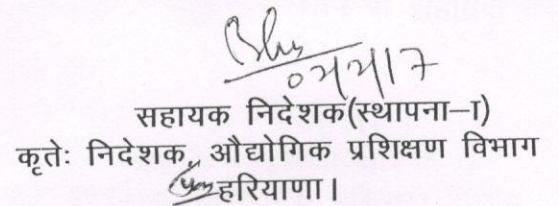 सहायक निदेशक(स्थापना–I)
कृतेः निदेशक, औद्योगिक प्रशिक्षण विभाग
हरियाणा।